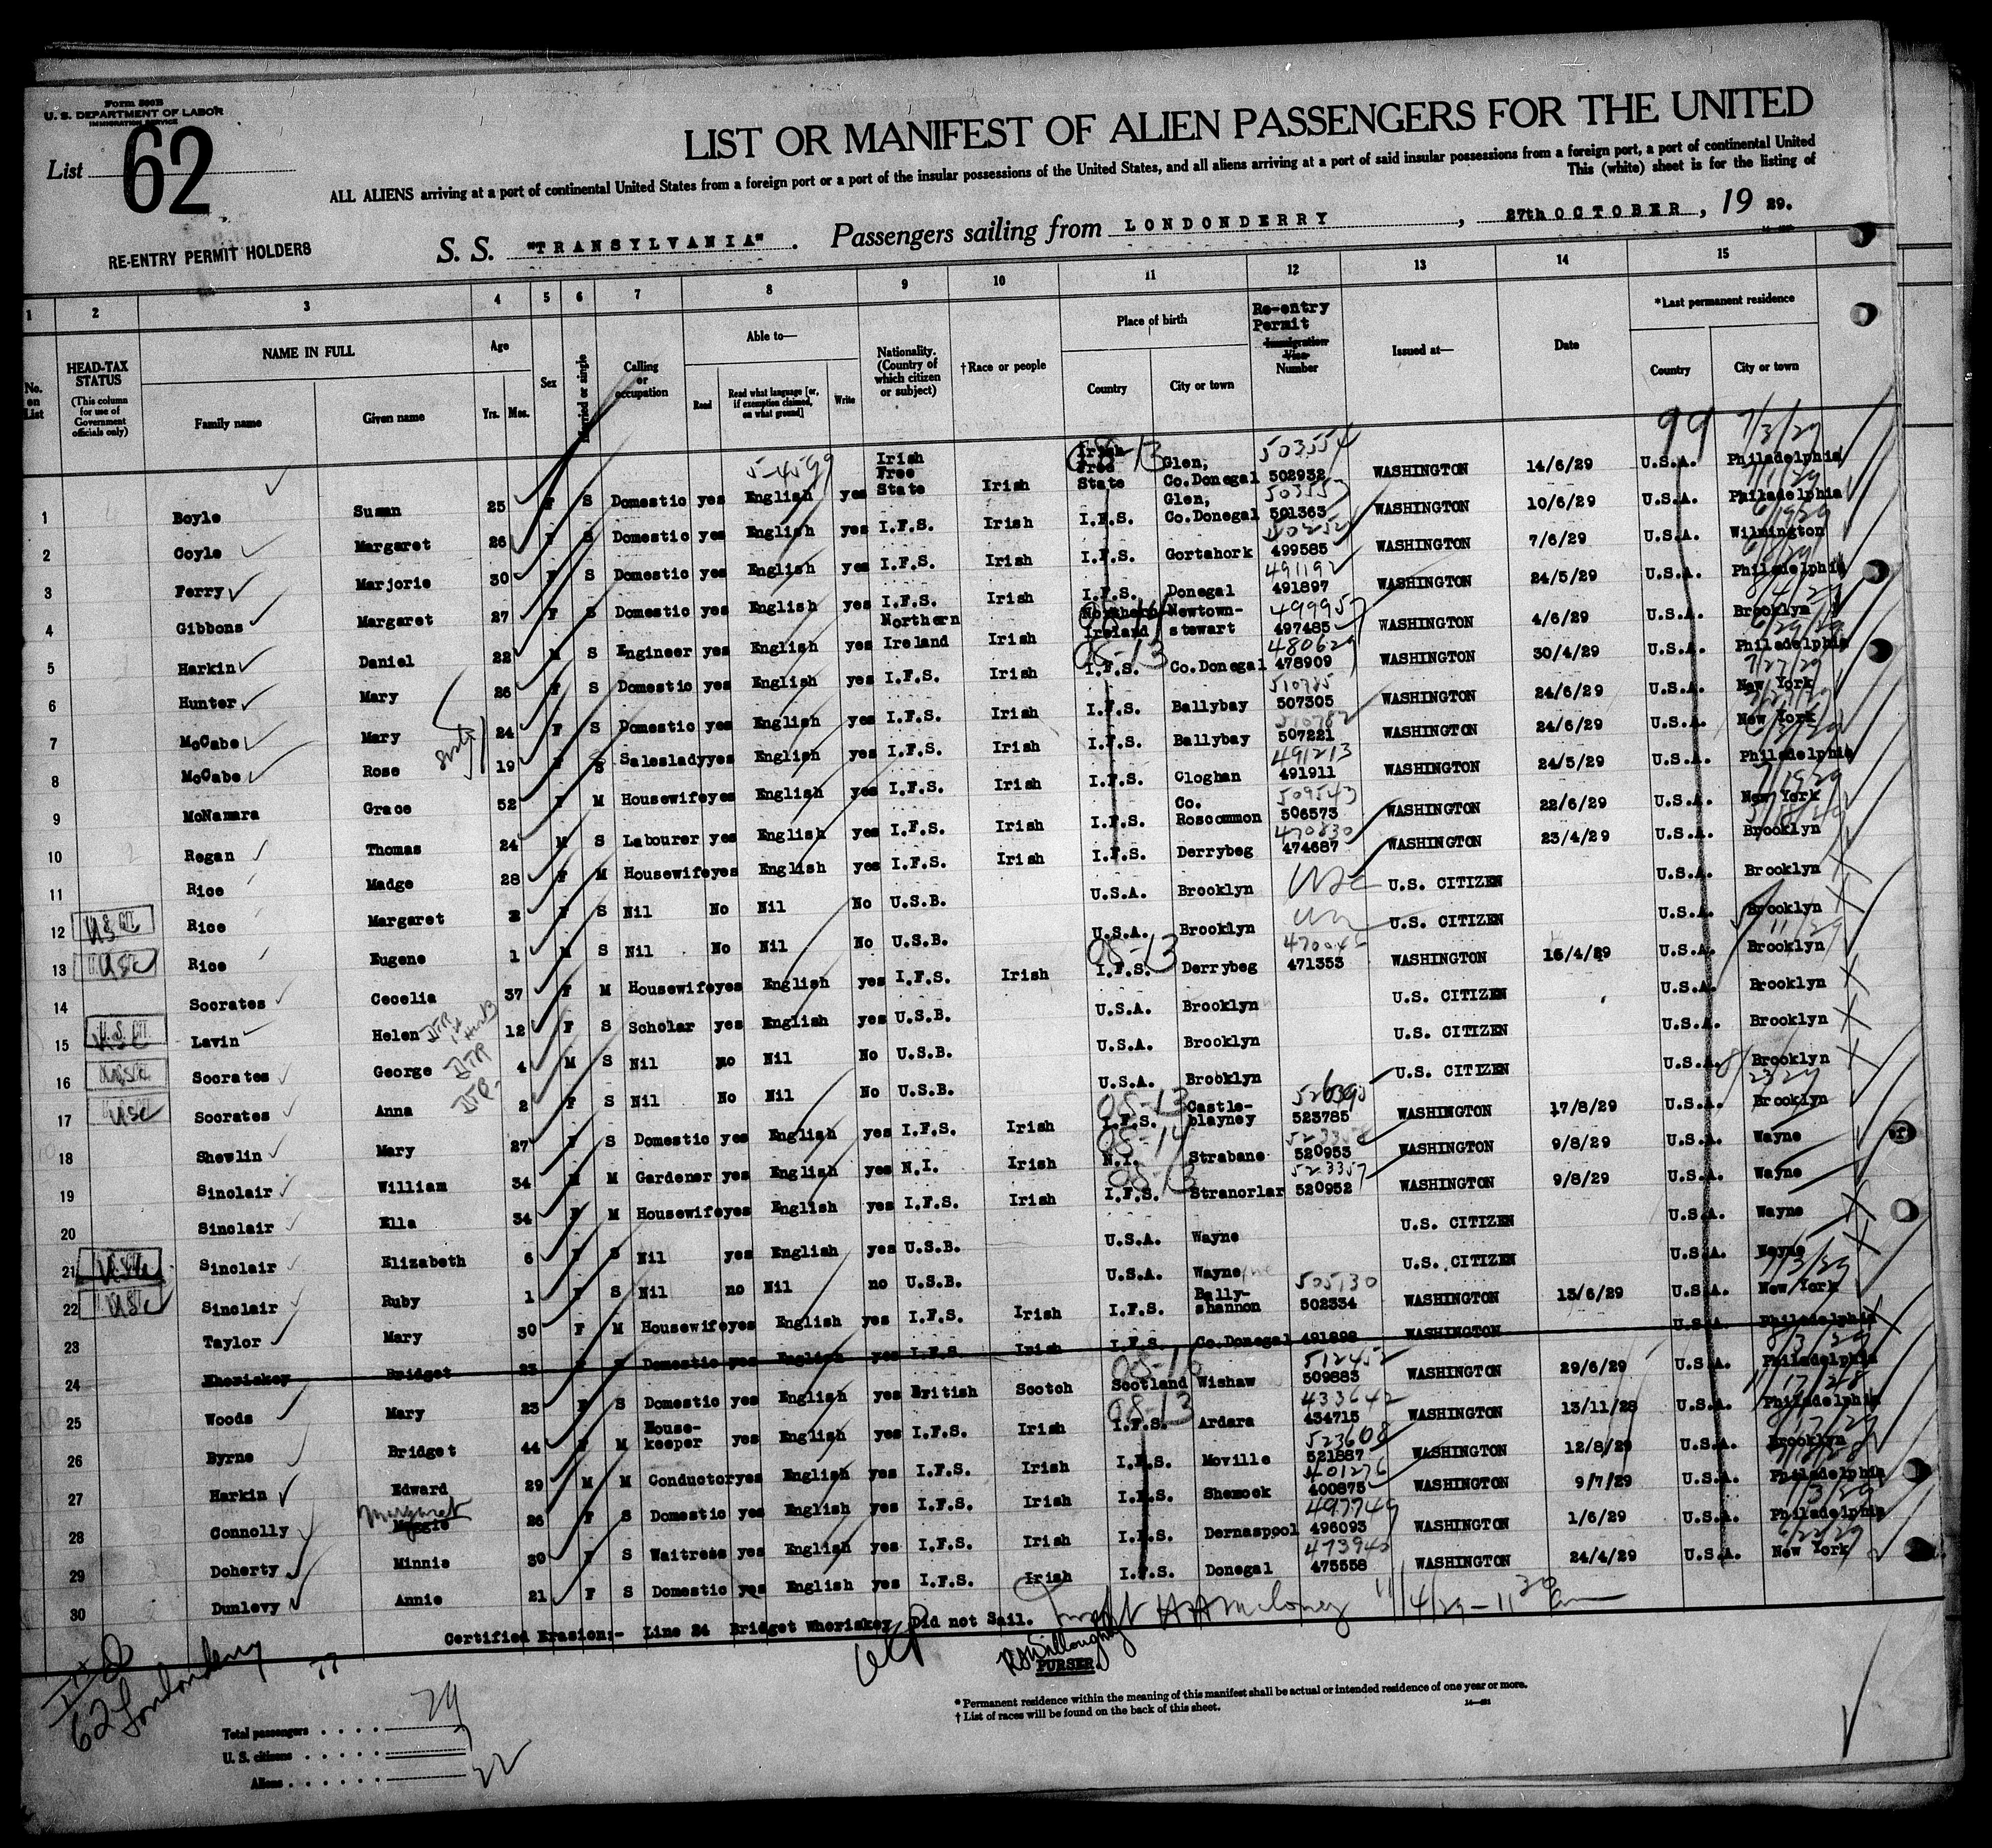 Form 500B
U. S. DEPARTMENT OF LABOR
IMMIGRATION SERVICE
List 62
LIST OR MANIFEST OF ALIEN PASSENGERS FOR THE UNITED
ALL ALIENS arriving at a port of continental United States from a foreign port or a port of the insular possessions of the United States, and all aliens arriving at a port of said insular possessions from a foreign port, a port of continental United
This (white) sheet is for the listing of
RE-ENTRY PERMIT HOLDERS
S. S. "TRANSYLVANIA". Passengers sailing from LONDONDERRY, 27th OCTOBER, 19 29.
1 2 3 4 5 6 7 8 9 10 11 12 13 14 15
No. on List
HEAD-TAX STATUS
(This column for use of Government officials only)
NAME IN FULL
Family name
Given name
Age
Yrs. Mos.
Sex
Married or single
Calling or occupation
Able to—
Read
Read what language [or, if exemption claimed, on what ground]
Write
Nationality. (Country of which citizen or subject)
†Race or people
Place of birth
Country
City or town
Re-entry Permit
Immigration Visa Number
Issued at—
Date
*Last permanent residence
Country
City or town
5-4599
99
1 Boyle Susan 25 F S Domestic yes English yes Irish Free State Irish Irish Free State Glen, Co.Donegal 503554 502932 WASHINGTON 14/6/29 U.S.A. Philadelphia 7/3/29
2 Coyle Margaret 26 F S Domestic yes English yes I.F.S. Irish I.F.S. Glen, Co.Donegal 503553 501363 WASHINGTON 10/6/29 U.S.A. Philadelphia 7/1/29
3 Ferry Marjorie 30 F S Domestic yes English yes I.F.S. Irish I.F.S. Gortahork 499585 WASHINGTON 7/6/29 U.S.A. Wilmington 6/19/29
4 Gibbons Margaret 27 F S Domestic yes English yes I.F.S. Irish I.F.S. Donegal 491897 WASHINGTON 24/5/29 U.S.A. Philadelphia
5 Harkin Daniel 22 M S Engineer yes English yes Northern Ireland Irish Northern Ireland Newtown-stewart 499957 497485 WASHINGTON 4/6/29 U.S.A. Brooklyn
6 Hunter Mary 26 F S Domestic yes English yes I.F.S. Irish 08-13 I.F.S. Co.Donegal 480629 478909 WASHINGTON 30/4/29 U.S.A. Philadelphia
7 McCabe Mary 24 F S Domestic yes English yes I.F.S. Irish I.F.S. Ballybay 507305 WASHINGTON 24/6/29 U.S.A. New York 7/27/29
8 McCabe Rose 19 F S Saleslady yes English yes I.F.S. Irish I.F.S. Ballybay 507221 WASHINGTON 24/6/29 U.S.A. New York
9 McNamara Grace 52 F M Housewife yes English yes I.F.S. Irish I.F.S. Cloghan 491213 491911 WASHINGTON 24/5/29 U.S.A. Philadelphia
10 Regan Thomas 24 M S Labourer yes English yes I.F.S. Irish I.F.S. Co. Roscommon 509543 506573 WASHINGTON 22/6/29 U.S.A. New York
11 Rice Madge 28 F M Housewife yes English yes I.F.S. Irish I.F.S. Derrybeg 470830 474687 WASHINGTON 23/4/29 U.S.A. Brooklyn
12 Rice Margaret 2 F S Nil No Nil No U.S.B. U.S.A. Brooklyn U.S. CITIZEN U.S.A. Brooklyn
13 USC Rice Eugene 1 M S Nil No Nil No U.S.B. U.S.A. Brooklyn U.S. CITIZEN U.S.A. Brooklyn
14 Socrates Cecelia 37 F M Housewife yes English yes I.F.S. Irish 08-13 I.F.S. Derrybeg 471353 WASHINGTON 16/4/29 U.S.A. Brooklyn
15 USC Lavin Helen 12 F S Scholar yes English yes U.S.B. U.S.A. Brooklyn U.S. CITIZEN U.S.A. Brooklyn
16 Socrates George 4 M S Nil no Nil No U.S.B. U.S.A. Brooklyn U.S. CITIZEN U.S.A. Brooklyn
17 USC Socrates Anna 2 F S Nil No Nil No U.S.B. U.S.A. Brooklyn U.S. CITIZEN U.S.A. Brooklyn
18 Shevlin Mary 27 F S Domestic yes English yes I.F.S. Irish 08-13 I.F.S. Castle-blayney 523785 WASHINGTON 17/8/29 U.S.A. Brooklyn
19 Sinclair William 34 M M Gardener yes English yes N.I. Irish 08-14 N.I. Strabane 523358 520953 WASHINGTON 9/8/29 U.S.A. Wayne
20 Sinclair Ella 34 F M Housewife yes English yes I.F.S. Irish 08-13 I.F.S. Stranorlar 523357 520952 WASHINGTON 9/8/29 U.S.A. Wayne
21 USC Sinclair Elizabeth 6 F S Nil yes English yes U.S.B. U.S.A. Wayne U.S. CITIZEN U.S.A. Wayne
22 USC Sinclair Ruby 1 F S Nil no Nil no U.S.B. U.S.A. Wayne U.S. CITIZEN U.S.A. Wayne
23 Taylor Mary 30 F M Housewife yes English yes I.F.S. Irish I.F.S. Bally-shannon 505130 502334 WASHINGTON 13/6/29 U.S.A. New York 7/3/29
24 Whoriskey Bridget 23 F S Domestic yes English yes I.F.S. Irish I.F.S. Co.Donegal 491898 WASHINGTON U.S.A. Philadelphia
25 Woods Mary 23 F S Domestic yes English yes British Scotch Scotland Wishaw 512452 509883 WASHINGTON 29/6/29 U.S.A. Philadelphia 8/3/29
26 Byrne Bridget 44 F M House-keeper yes English yes I.F.S. Irish 08-13 I.F.S. Ardara 433642 434715 WASHINGTON 13/11/28 U.S.A. Philadelphia 11/17/28
27 Harkin Edward 29 M M Conductor yes English yes I.F.S. Irish I.F.S. Moville 523608 521887 WASHINGTON 12/8/29 U.S.A. Brooklyn 8/17/29
28 Connolly Margaret Maggie 26 F S Domestic yes English yes I.F.S. Irish I.F.S. Shemock 401276 400875 WASHINGTON 9/7/29 U.S.A. Philadelphia
29 Doherty Minnie 30 F S Waitress yes English yes I.F.S. Irish I.F.S. Dernaspool 497749 496093 WASHINGTON 1/6/29 U.S.A. Philadelphia
30 Dunlevy Annie 21 F S Domestic yes English yes I.F.S. Irish I.F.S. Donegal 475558 WASHINGTON 24/4/29 U.S.A. New York
Certified Erasion:- Line 24 Bridget Whoriskey Did not Sail.
PURSER.
62 Londonderry
77
Total passengers . . . . 29
U. S. citizens . . . . . 7
Aliens . . . . . . 22
* Permanent residence within the meaning of this manifest shall be actual or intended residence of one year or more.
† List of races will be found on the back of this sheet.